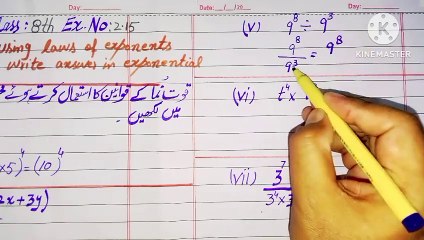 lass: 8th Ex.No: 2.15
using laws of exponents
write answer in exponential
قوت نما کے قوانین کا استعمال کرتے ہوئے
میں لکھیں۔
×5)⁴ = (10)⁴
2x+3y)
Date: __/__/20
(v) 9⁸ ÷ 9³
9⁸/9³ = 9⁸
(vi) t⁴×
(vii) 3⁷/3⁴×3
KINEMASTER